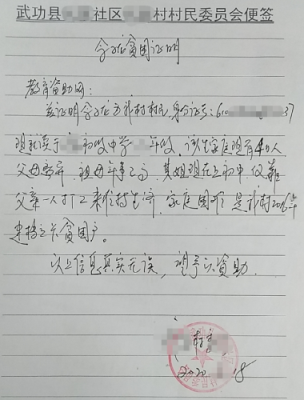 武功县社区村村民委员会便签
贫困证明
教育资助网：
兹证明系我村村民，身份证号：6 37
现就读于初级中学年级，该生家庭现有4口人
父母，祖母年事已高，其姐现在上初中，仅靠
父亲一人打工来维持生活，家庭困难，是我村2016年
建档立卡贫困户。
以上信息真实无误，望予以资助。
2020 18